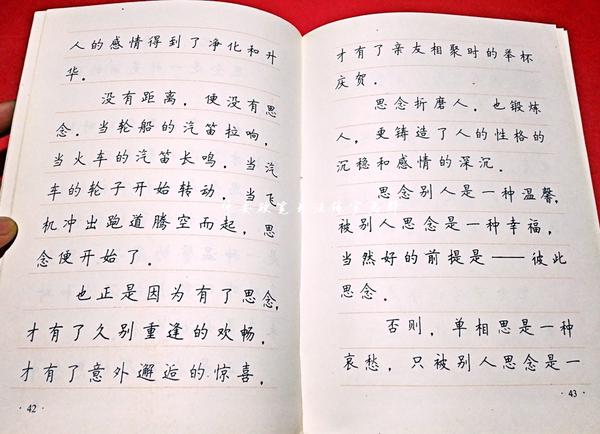 人的感情得到了净化和升
华.
没有距离，便没有思
念.当轮船的汽笛拉响,
当火车的汽笛长鸣.当汽
车的轮子开始转动.当飞
机冲出跑道腾空而起,思
念便开始了.
也正是因为有了思念,
才有了久别重逢的欢畅.
才有了意外邂逅的惊喜.
·42·
才有了亲友相聚时的举杯
庆贺.
思念折磨人，也锻炼
人，更铸造了人的性格的
沉稳和感情的深沉.
思念别人是一种温馨,
被别人思念是一种幸福,
当然好的前提是——彼此
思念.
否则，单相思是一种
哀愁，只被别人思念是一
·43·